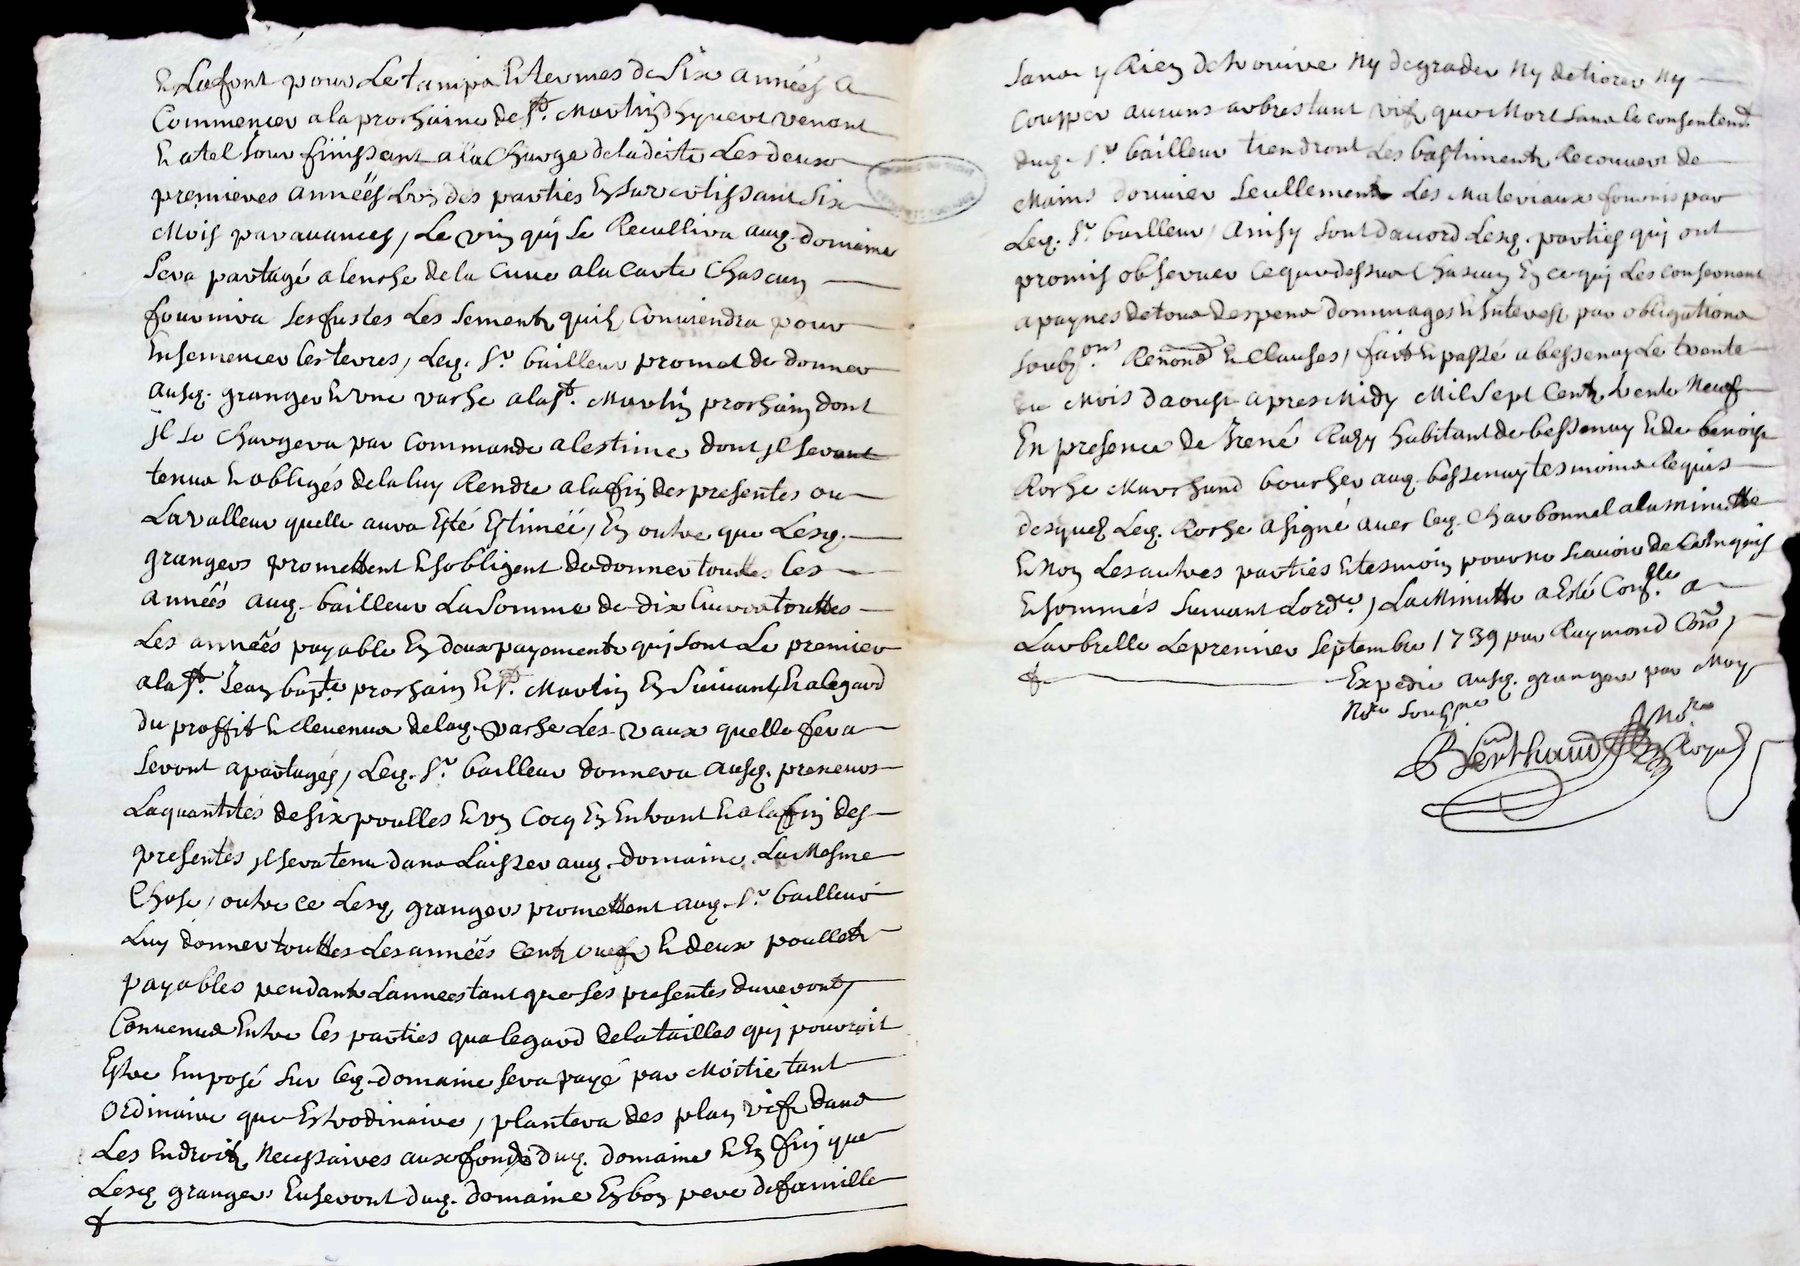 et Lafont pour Le tamps Et termes de Six années a
Commencer a la prochaine de St. Martin dhyvert venant
Et a tel Jour finissant a la Charge de la dette Les deux
premieres années Lun des parties En Sur Six
Mois par avances, Le vin quy Se Recullira audq. domaine
Sera partagé a lenche de la Cuve a la Carte Chascun
fournira Ses fustes Les Sements quil Conviendra pour
Ensemencer les terres, Ledq. Sr. bailleur promet de donner
ausq. granger Et une vache a la St. Martin prochain dont
jl Se Chargera par Commande a lestime dont jl Seront
tenus Et obligés de la luy Rendre a la fin des presentes ou
La valleur quelle aura Esté Estimée, En outre que Lesq.
grangers promettent Et Sobligent de donner toutes les
années auq. bailleur La Somme de dix Livres touttes
Les années payable En deux payements quj Sont Le premier
a la St. Jean bapte prochain Et St. Martin En Suivant, Et a legard
du proffit Et Revenus de laq. vache Les vaux quelle fera
Seront a partagés, Leq. Sr. bailleur donnera ausq. preneurs
La quantités de six poulles Et un Cocq En Entrant Et a la fin des
presentes jl sera tenu dans Laisser auq. domaine La Mesme
Chose, outre ce Lesq. grangers promettent auq. Sr. bailleur
Luy donner touttes Les années Cent oeufs Et deux poullets
payables pendant Lannees tant que Ses presentes dureront,
Convenus Entre les parties qua legard de la tailles quj pourroit
Estre Imposé Sur leq. domaine Sera payé par Moitie tant
Ordinaire que Extrodinaire, plantera des plan vifs dans
Les Endroits Necessaires aux fonds duq. domaine Et En fin que
Lesq. grangers Euseront duq. domaine En bon pere de famille
Sans y Rien detrouire Ny degrader Ny detiorer Ny
Coupper aucuns arbres tant vifs que Mort Sans le consentemt
duq. Sr. bailleur tiendront Les bastiments Recouvert de
Mains douvrier Seullement Les Materiaux fournis par
Leq. Sr. bailleur, Ainsy Sont dacord Lesq. parties quj ont
promis observer ce que dessus Chascun En ce quj Les consernent
a paynes de tous despens dommages Et Interest, par obligations
Soubzons. Renond Et Clauses, fait Et passé a bessenay Le trente
du Mois daoust apres Midy Mil Sept Cents trente Neuf
En presence de Irené Razy habitant de bessenay Et de benoist
Roche Marchand boucher auq. bessenay tesmoins Requis
desquels Leq. Roche a Signé avec leq. Charbonnel a la minutte
Et Non Les autres parties Et tesmoin pour ne Scavoir de Ce Enquis
Et Sommés Suivant Lordce., La Minutte a Esté Conlée. a
Larbrelle Le premier Septembre 1739 par Raymond Cõis,
Expedie ausq. grangers par Moy
Nore Soubzne
Berthaud Nore Royal